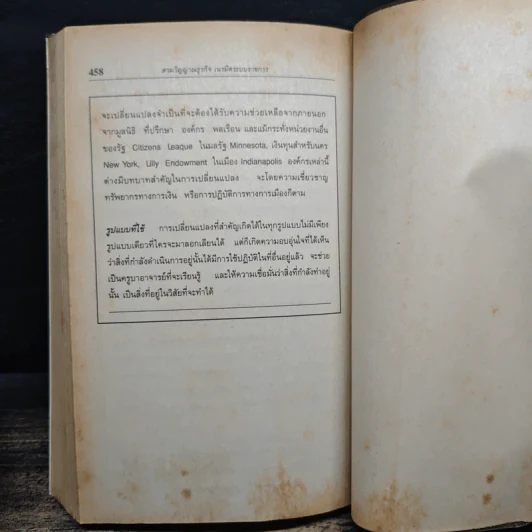 458
ตามวิญญาณธุรกิจ เนรมิตระบบราชการ
จะเปลี่ยนแปลงจำเป็นที่จะต้องได้รับความช่วยเหลือจากภายนอก
จากมูลนิธิ ที่ปรึกษา องค์กร พลเรือน และแม้กระทั่งหน่วยงานอื่น
ของรัฐ Citizens Leaque ในมลรัฐ Minnesota, เงินทุนสำหรับนคร
New York, Lilly Endowment ในเมือง Indianapolis องค์กรเหล่านี้
ต่างมีบทบาทสำคัญในการเปลี่ยนแปลง จะโดยความเชี่ยวชาญ
ทรัพยากรทางการเงิน หรือการปฏิบัติการทางการเมืองก็ตาม
รูปแบบที่ใช้ การเปลี่ยนแปลงที่สำคัญเกิดได้ในทุกรูปแบบไม่มีเพียง
รูปแบบเดียวที่ใครจะมาลอกเลียนได้ แต่ก็เกิดความอบอุ่นใจที่ได้เห็น
ว่าสิ่งที่กำลังดำเนินการอยู่นั้นได้มีการใช้ปฏิบัติในที่อื่นอยู่แล้ว จะช่วย
เป็นครูบาอาจารย์ที่จะเรียนรู้ และให้ความเชื่อมั่นว่าสิ่งที่กำลังทำอยู่
นั้น เป็นสิ่งที่อยู่ในวิสัยที่จะทำได้